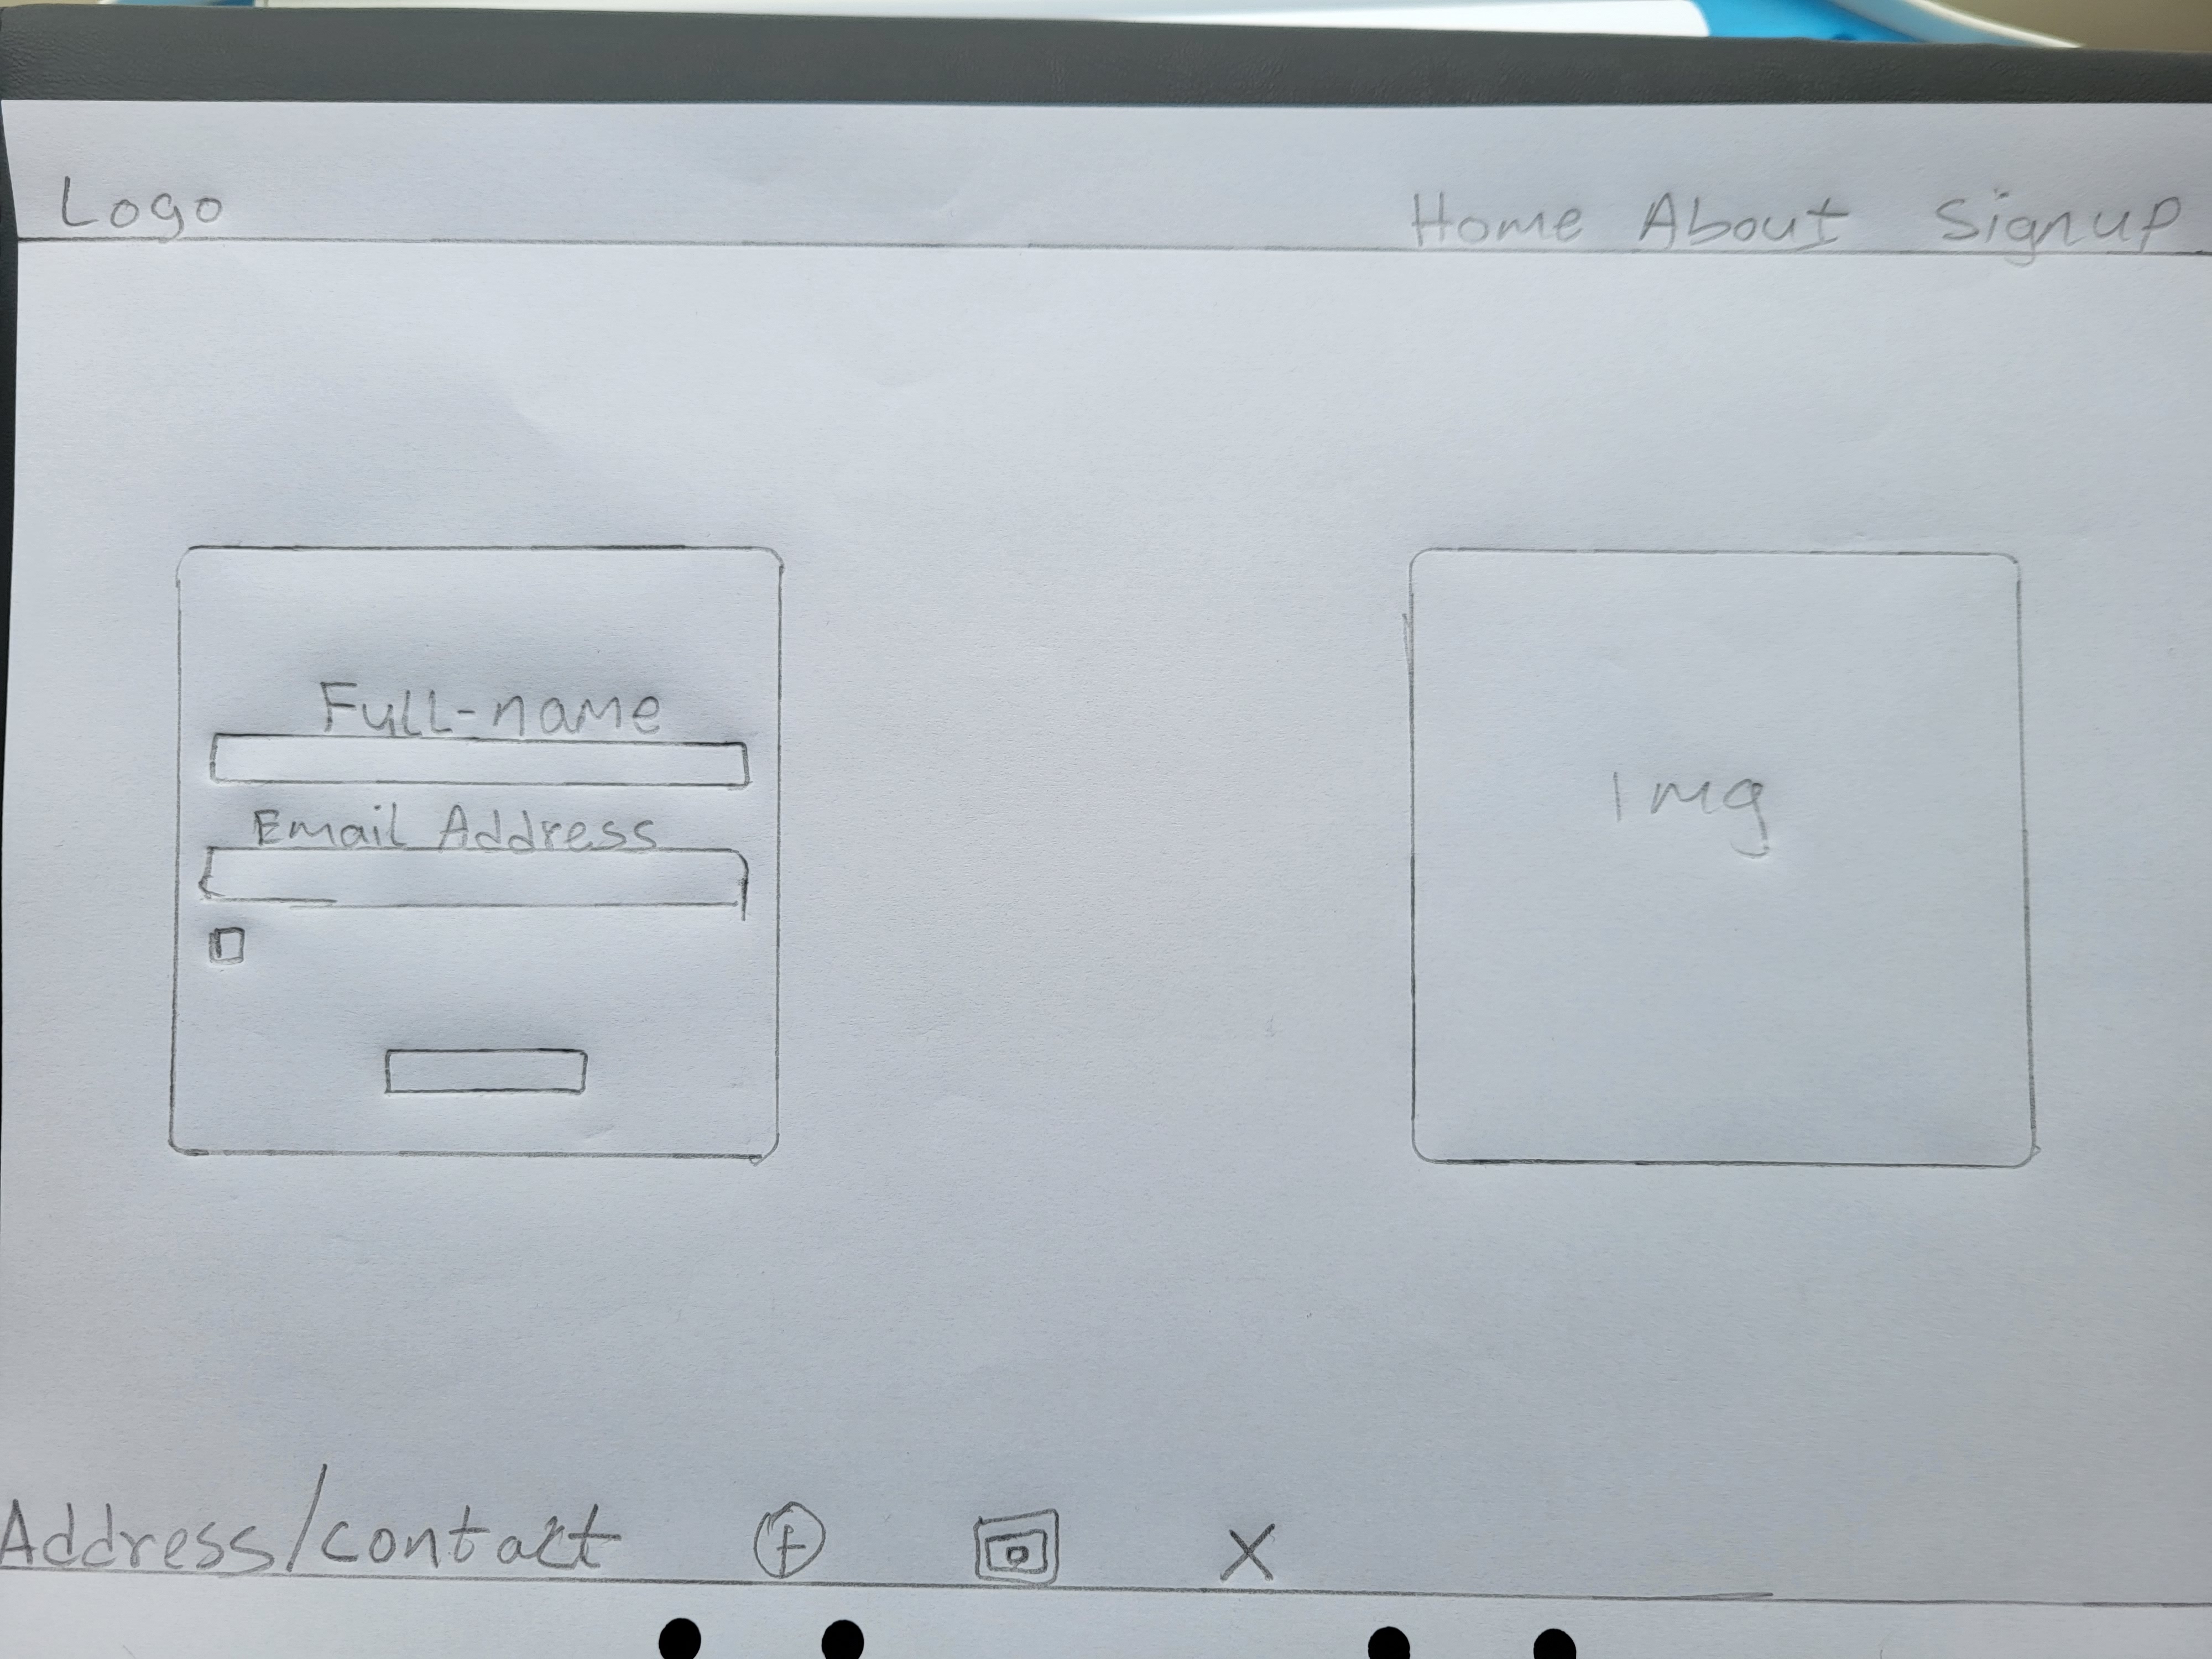 Logo
Home About Signup
Full-name
Email Address
Img
Address/contact f X